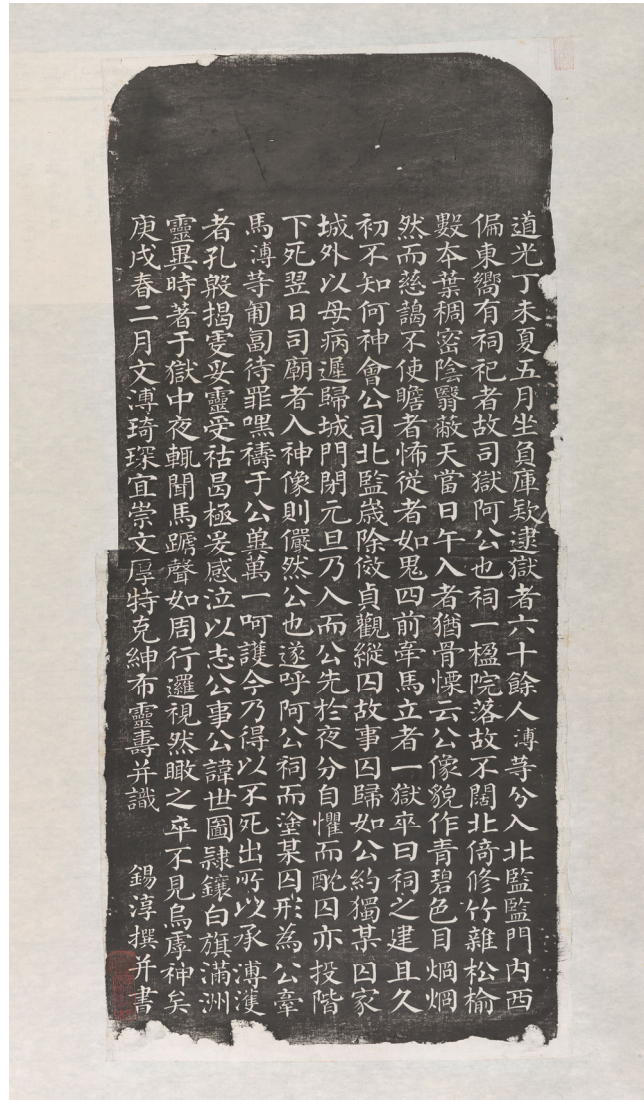 道光丁未夏五月坐負庫欵逮獄者六十餘人溥等分入北監監門內西
偏東嚮有祠祀者故司獄阿公也祠一楹院落故不闊北倚修竹雜松榆
數本葉稠密陰翳蔽天當日午入者猶骨慄云公像貌作青碧色目烱烱
然而慈藹不使瞻者怖從者如鬼四前牽馬立者一獄卒曰祠之建且久
初不知何神會公司北監歲除倣貞觀縱囚故事囚歸如公約獨某囚家
城外以母病遲歸城門閉元旦乃入而公先於夜分自懼而酖囚亦投階
下死翌日司廟者入神像則儼然公也遂呼阿公祠而塗某囚形為公牽
馬溥等匍匐待罪嘿禱于公兾萬一呵護今乃得以不死出所以承溥濩
者孔殷揭虔妥靈受祜曷極爰感泣以志公事公諱世圖隸鑲白旗滿洲
靈異時著于獄中夜輒聞馬蹏聲如周行邏視然瞰之卒不見烏虖神矣
庚戌春二月文溥琦琛宜崇文厚特克紳布靈壽并識 錫淳撰并書